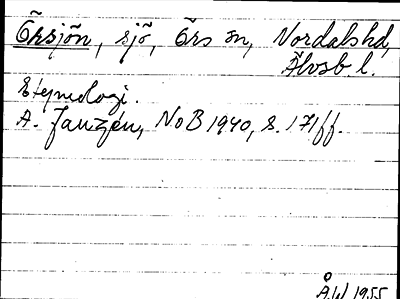 Örsjön, sjö, Örs sn, Nordalshd,
Älvsb l.
Etymologi.
A. Janzén, NoB 1940, s. 171ff.
Å.W 1955